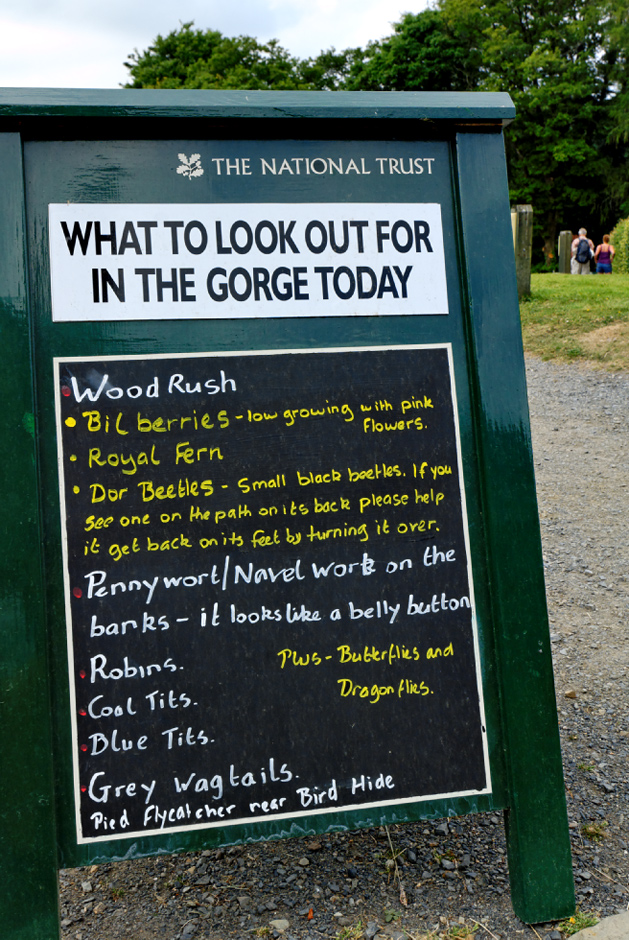 THE NATIONAL TRUST
WHAT TO LOOK OUT FOR
IN THE GORGE TODAY
• Wood Rush
• Bilberries - low growing with pink
Flowers.
• Royal Fern
• Dor Beetles - Small black beetles. If you
see one on the path on its back please help
it get back on its feet by turning it over.
• Pennywort/Navel Work on the
banks - it looks like a belly button
• Robins.
Plus - Butterflies and
Dragonflies.
• Coal Tits.
• Blue Tits.
• Grey Wagtails.
Pied Flycatcher near Bird Hide